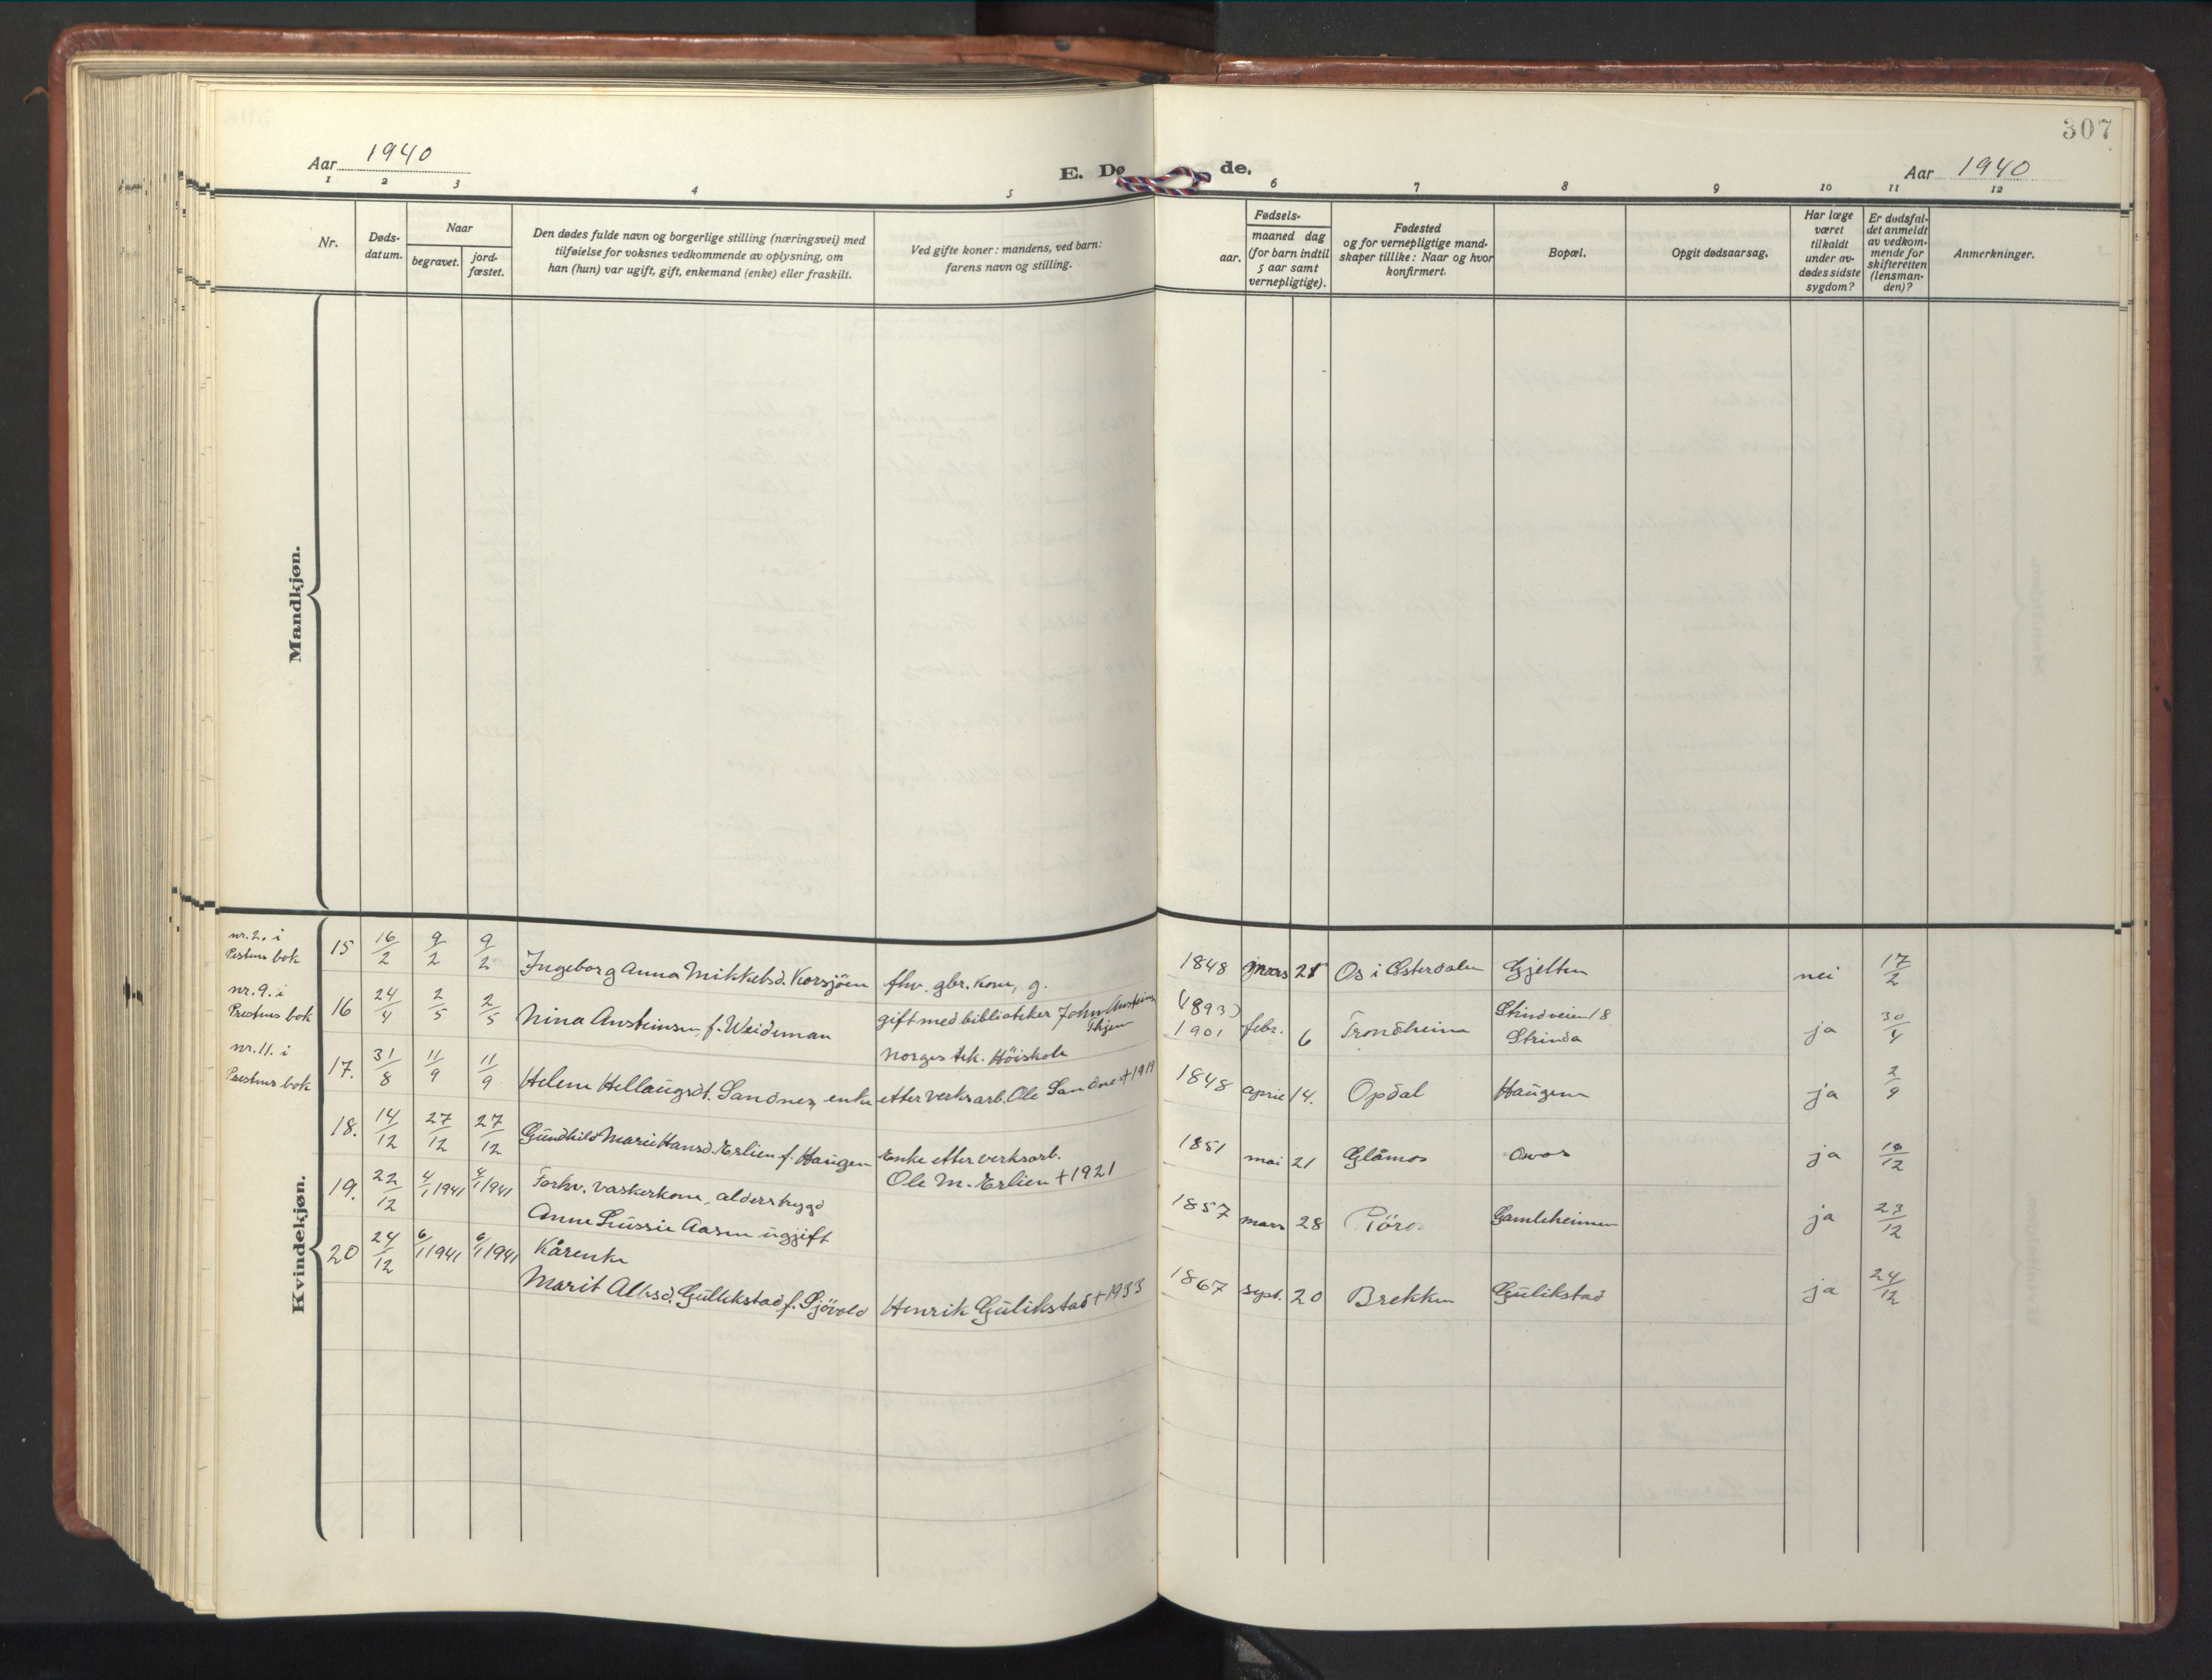 307
Aar 1940
E. Dø de.
Aar 1940
1 2 3 4 5 6 7 8 9 10 11 12
Nr.
Døds-
datum.
Naar
begravet.
jord-
fæstet.
Den dødes fulde navn og borgerlige stilling (næringsvei) med
tilføielse for voksnes vedkommende av oplysning, om
han (hun) var ugift, gift, enkemand (enke) eller fraskilt.
Ved gifte koner: mandens, ved barn:
farens navn og stilling.
Fødsels-
aar.
maaned dag
(for barn indtil
5 aar samt
vernepligtige).
Fødested
og for vernepligtige mand-
skaper tillike: Naar og hvor
konfirmert.
Bopæl.
Opgit dødsaarsag.
Har læge
været
tilkaldt
under av-
dødes sidste
sygdom?
Er dødsfal-
det anmeldt
av vedkom-
mende for
skifteretten
(lensman-
den)?
Anmerkninger.
Mandkjøn.
Kvindekjøn.
nr. 2. i
Prestens bok
15 16/2 9/2 9/2 Ingeborg Anna Mikkelsd. Korsjöen fhv. gbr. kone, g. 1848 mars 21 Os i Østerdalen Gjelten nei 17/2
nr. 9. i
Prestens bok
16 24/4 2/5 2/5 Nina Ansteinsen f. Weideman gift med biblioteker John Ansteinsen
Norges tek. Höiskole
(1893)
1901 febr. 6 Trondheim Strindveien 18
Strinda ja 30/4
nr. 11. i
Prestens bok
17. 31/8 11/9 11/9 Helene Hellaugsdt. Sandnes, enke etter verksarb. Ole Sandnes +1919 1848 april 14. Opdal Haugen ja 2/9
18. 14/12 27/12 27/12 Gundhild Marie Hansd. Erlien f. Haugen Enke etter verksarb.
Ole M. Erlien +1921 1851 mai 21 Glåmos Osvos ja 18/12
19. 22/12 4/1 1941 4/1 1941 Forhv. vaskerkone, alderstrygd
Anne Lussie Aasen ugift 1857 mars 28 Röros Gamleheimen ja 23/12
20 24/12 6/1 1941 6/1 1941 Kårenke
Marit Allesd. Gullikstad f. Sjövold Henrik Gulikstad +1933 1867 sept. 20 Brekken Gulikstad ja 24/12